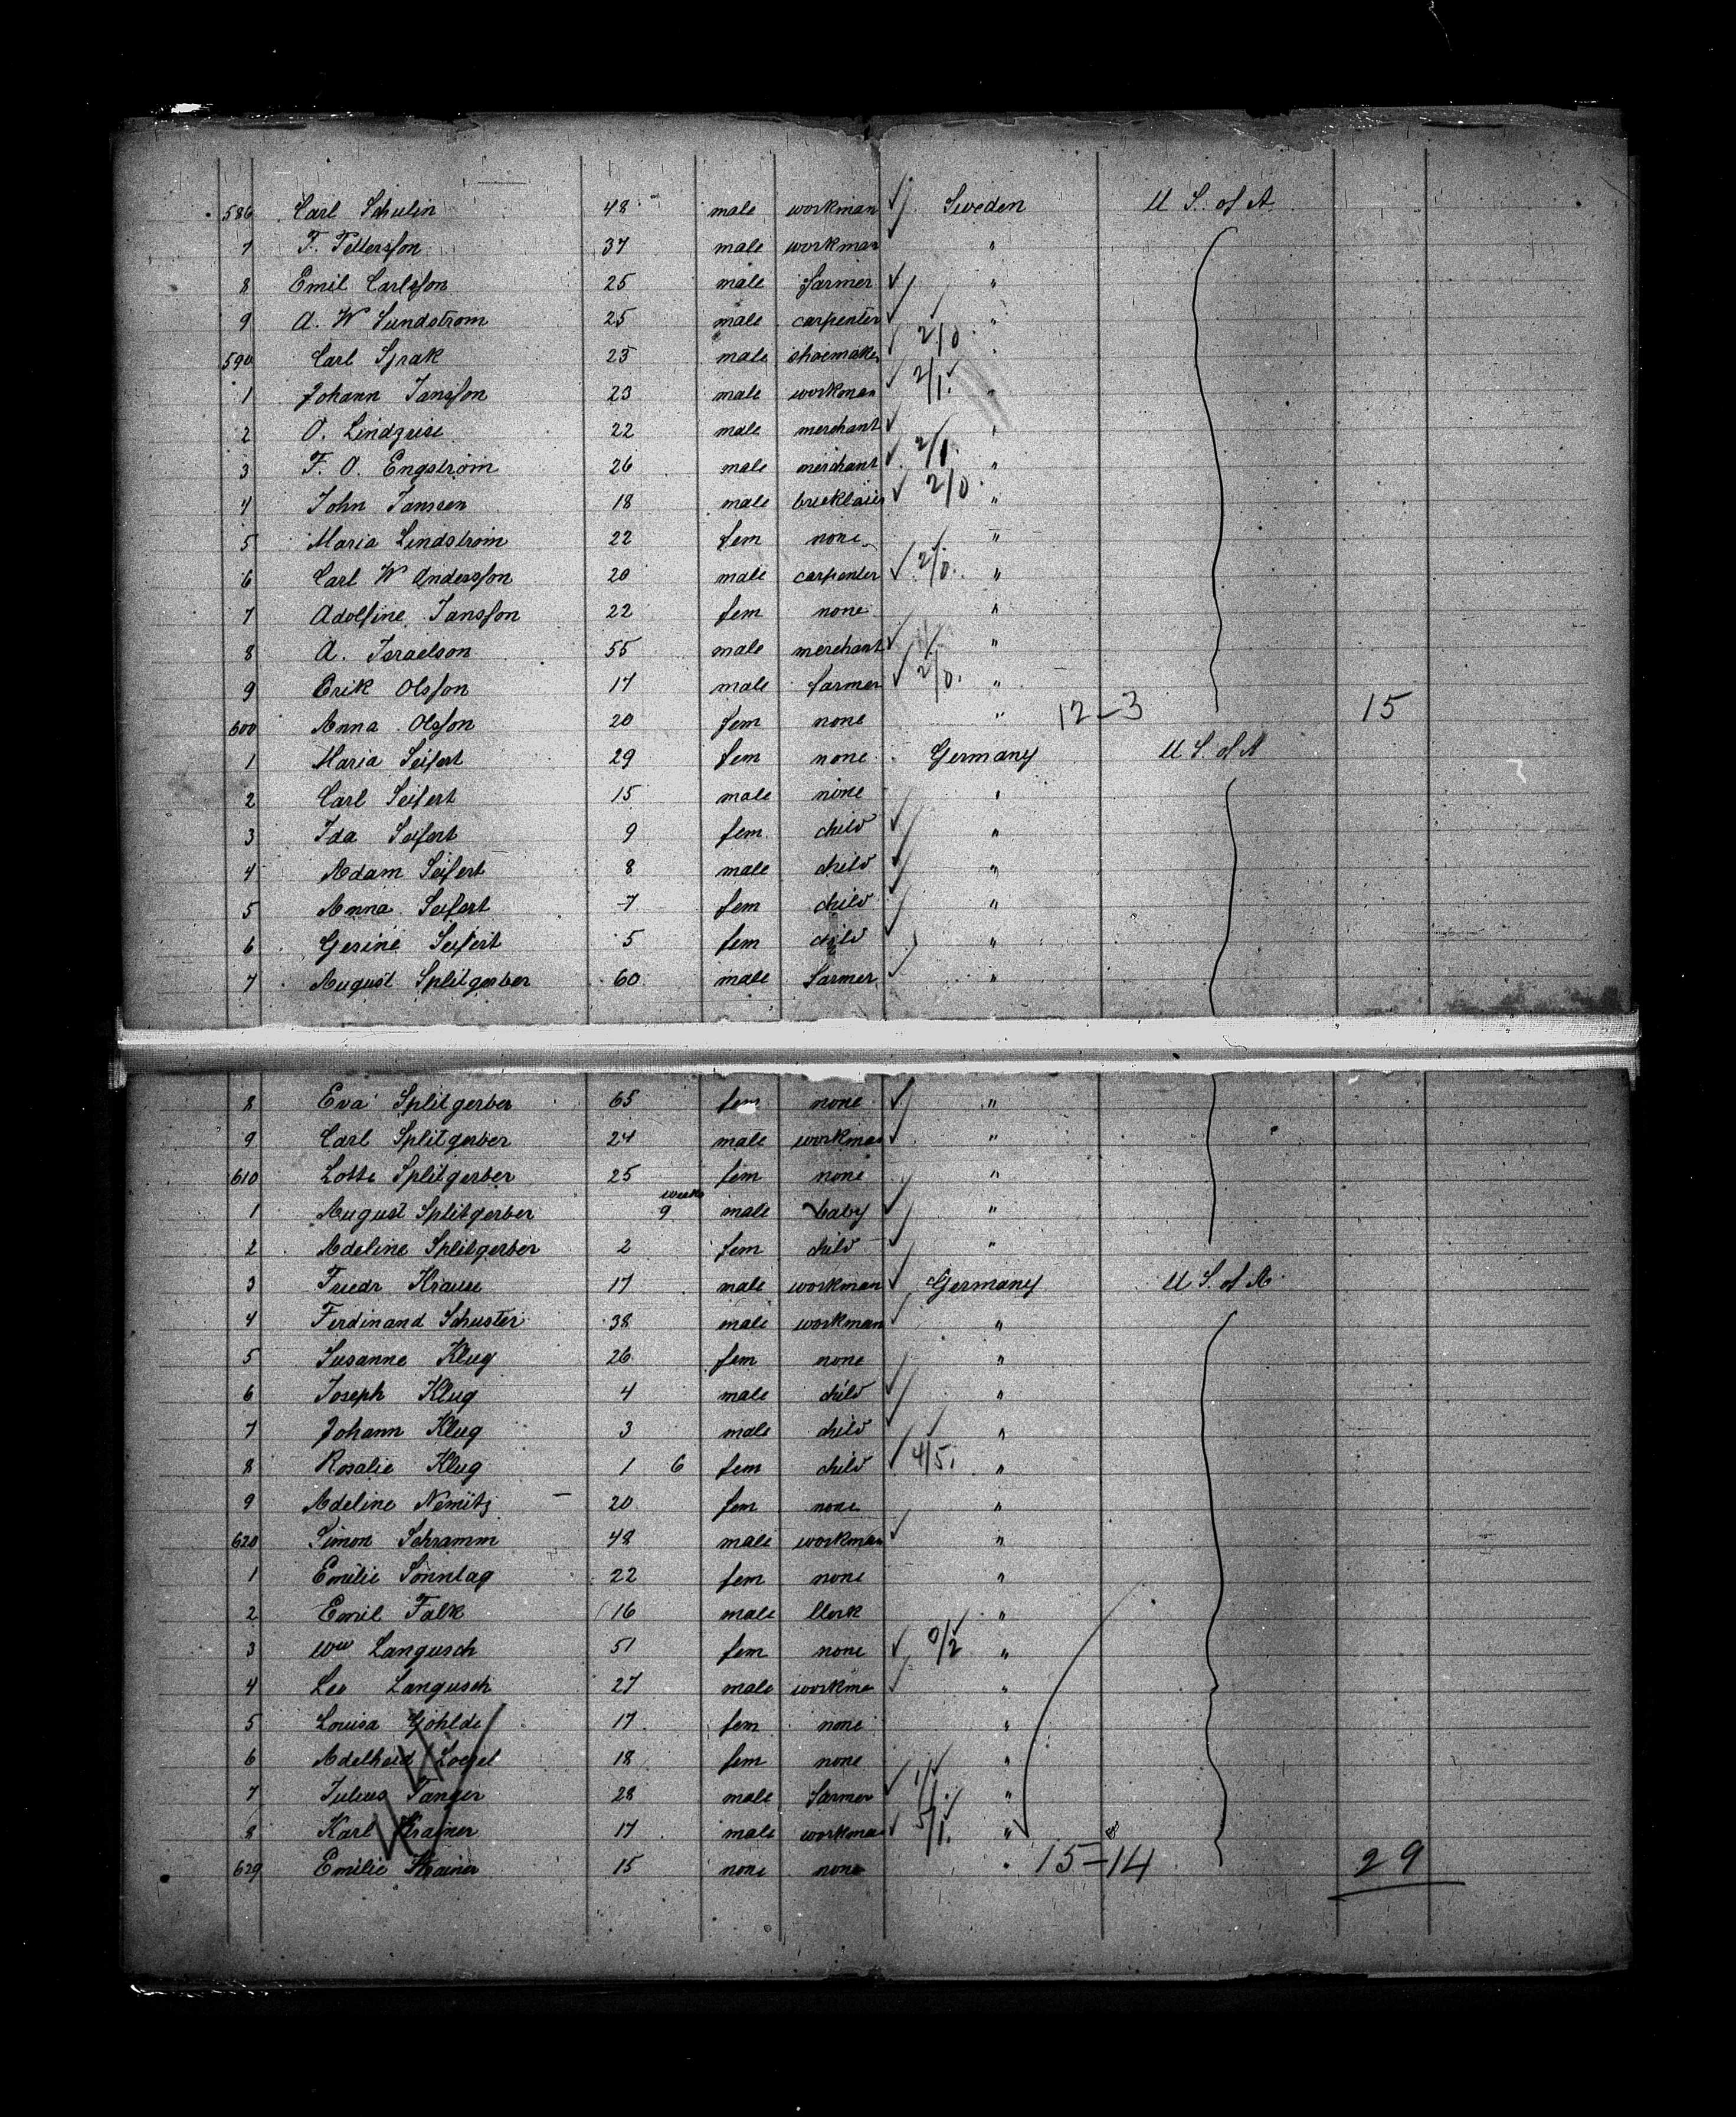 586 Carl Schulin 48 male workman Sweden U S. of A.
7 F. Pettersson 37 male workman "
8 Emil Carlsson 25 male farmer "
9 A. W Sundstrom 25 male carpenter "
590 Carl Sprak 23 male shoemaker 2/0 "
1 Johann Jansson 23 male workman 2/1. "
2 O. 22 male merchant "
3 F. O. Engström 26 male merchant 2/1. "
4 John Janssen 18 male 2/0. "
5 Maria Lindstrom 22 fem none "
6 Carl W Andersson 20 male carpenter 2/0. "
7 Adolfine Jansson 22 fem none "
8 A. Israelson 55 male merchant "
9 Erik Olsson 17 male farmer 2/0. "
600 Anna Olsson 20 fem none " 12-3 15
1 Maria Seifert 29 fem none Germany U S. of A
2 Carl Seifert 15 male none "
3 Ida Seifert 9 fem child "
4 Adam Seifert 8 male child "
5 Anna Seifert 7 fem child "
6 Gerine Seifert 5 fem child "
7 August Splitgerber 60 male farmer "
8 Eva Splitgerber 65 fem none "
9 Carl Splitgerber 24 male workman "
610 Lotte Splitgerber 25 fem none "
1 August Splitgerber weeks 9 male baby "
2 Adeline Splitgerber 2 fem child "
3 Friedr Krause 17 male workman Germany U S. of A.
4 Ferdinand Schuster 38 male workman "
5 Susanne Klug 26 fem none "
6 Joseph Klug 4 male child "
7 Johann Klug 3 male child "
8 Rosalie Klug 1 6 fem child 4/5. "
9 Adeline Nemitz 20 fem none "
620 Simon Schramm 48 male workman "
1 Emilie Sonntag 22 fem none "
2 Emil Falk 16 male Clerk "
3 Ww Langusch 51 fem none 0/2 "
4 Leo Langusch 27 male workma "
5 Louisa Gohlde 17 fem none "
6 Adelheid 18 fem none "
7 Julius Tanger 28 male farmer 1/1. "
8 Karl Krainer 17 male workman 5/1. "
629 Emilie Krainer 15 none none " 15-14 29